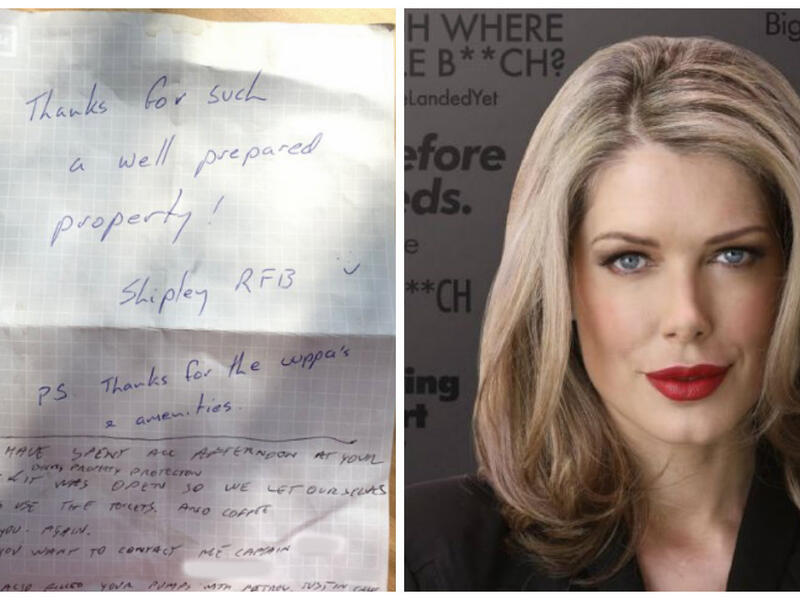 Thanks for such
a well prepared
property!
Shipley RFB
PS. Thanks for the cuppa's
& amenities.
HAVE SPENT ALL AFTERNOON AT YOUR
DOING PROPERTY PROTECTION
IT WAS OPEN SO WE LET OURSELVES
USE THE TOILETS. AND COFFEE
YOU. AGAIN.
YOU WANT TO CONTACT ME CAPTAIN
ALSO FILLED YOUR PUMPS WITH PETROL JUST IN CASE
H WHERE
E B**CH?
LandedYet
efore
ds.
e
**CH
ing
rt
Big